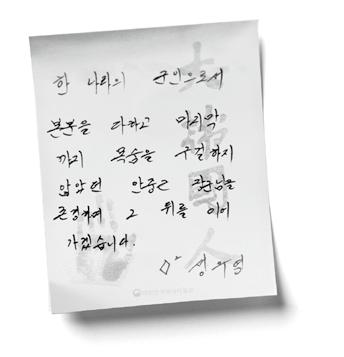 한 나라의 군인으로서
본분을 다하고 마지막
까지 목숨을 구걸하지
않았던 안중근 장군님을
존경하며 그 뒤를 이어
가겠습니다.
大韓國人